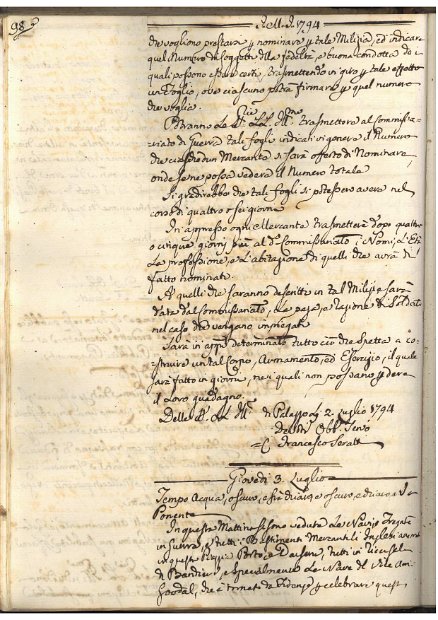 98
Dell' A. 1794
che vogliono prestarsi, e nominare p tale Milizia, ed indicare
quel Numero di Soggetti della fedeltà, e buona condotta de
quali possono esser certi, trasmettendo in giro p tale effetto
un Foglio, ove ciascuno potrà firmare p quel numero
che voglia.
Potranno Le trasmettere al Commissa-
riato di Guerra tali fogli indicativi generali il Numero
che ciascedun Mercante si sarà offerto di Nominare
onde se ne possa vedere il Numero totale.
Si gradirebbe che tali fogli si potessero avere nel
corso di quattro o sei giorni.
In appresso ogni Mercante trasmetterà dopo quattro
o cinque giorni al do Commissariato i Nomi, L'Età
La professione, e L'abitazione di quelli che avrà di
fatto nominati.
A quelli che saranno descritti in tal Milizia sarà
data dal Commissariato, la paga, e razione di Soldato
nel caso che vengano impiegati.
Sarà in appo determinato tutto ciò che spetta a co-
struire un tal corpo, Armamento, ed Esercizio, il quale
sarà fatto in giorni, nei quali non possano perdere
il loro guadagno.
Delle di Palazzo Li 2 Luglio 1794
Obb. Servo
Francesco Seratti
Giovedì 3. Luglio
Tempo Acqua, oscuro, e
Ponente
In questa Mattina si sono vedute Le Navi, e Fregate
in guerra, e tutti i Bastimenti Mercantili Inglesi ancorati
in questo Porto, e tutti
di Bandiere, e specialmente La Nave del Vice Am
Goodal, che è tornata da p celebrare quest